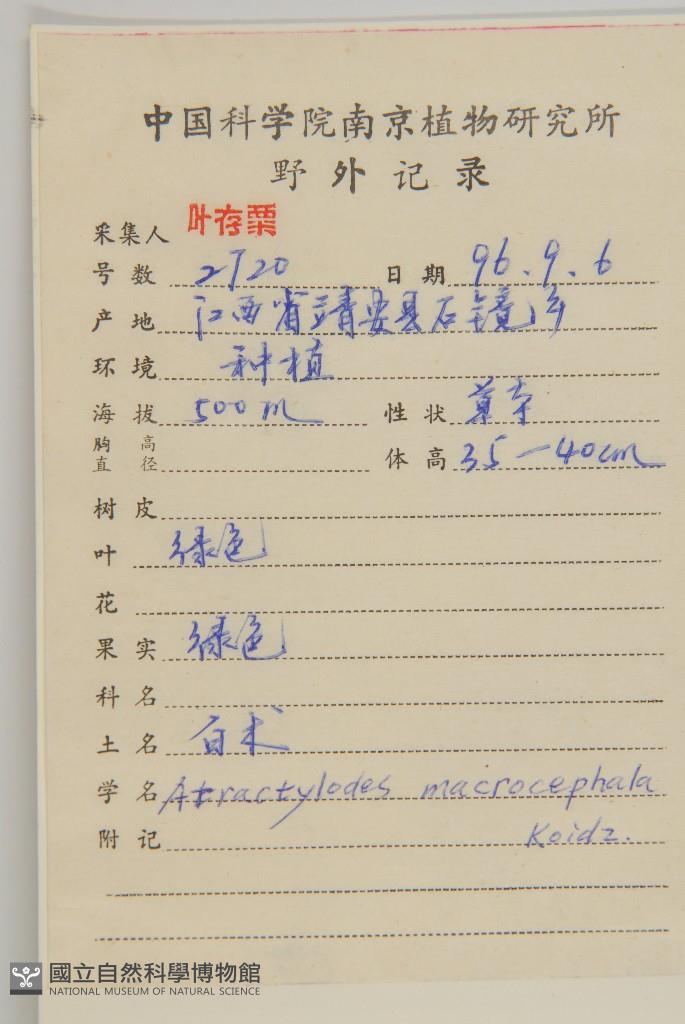 中国科学院南京植物研究所
野外记录
采集人 叶存粟
号数 2720 日期 96.9.6
产地 江西省靖安县石镜乡
环境 种植
海拔 500m 性状 草本
胸高直径 体高 35-40cm
树皮
叶 绿色
花
果实 绿色
科名
土名 白术
学名 Atractylodes macrocephala
附记 Koidz.
國立自然科學博物館
NATIONAL MUSEUM OF NATURAL SCIENCE